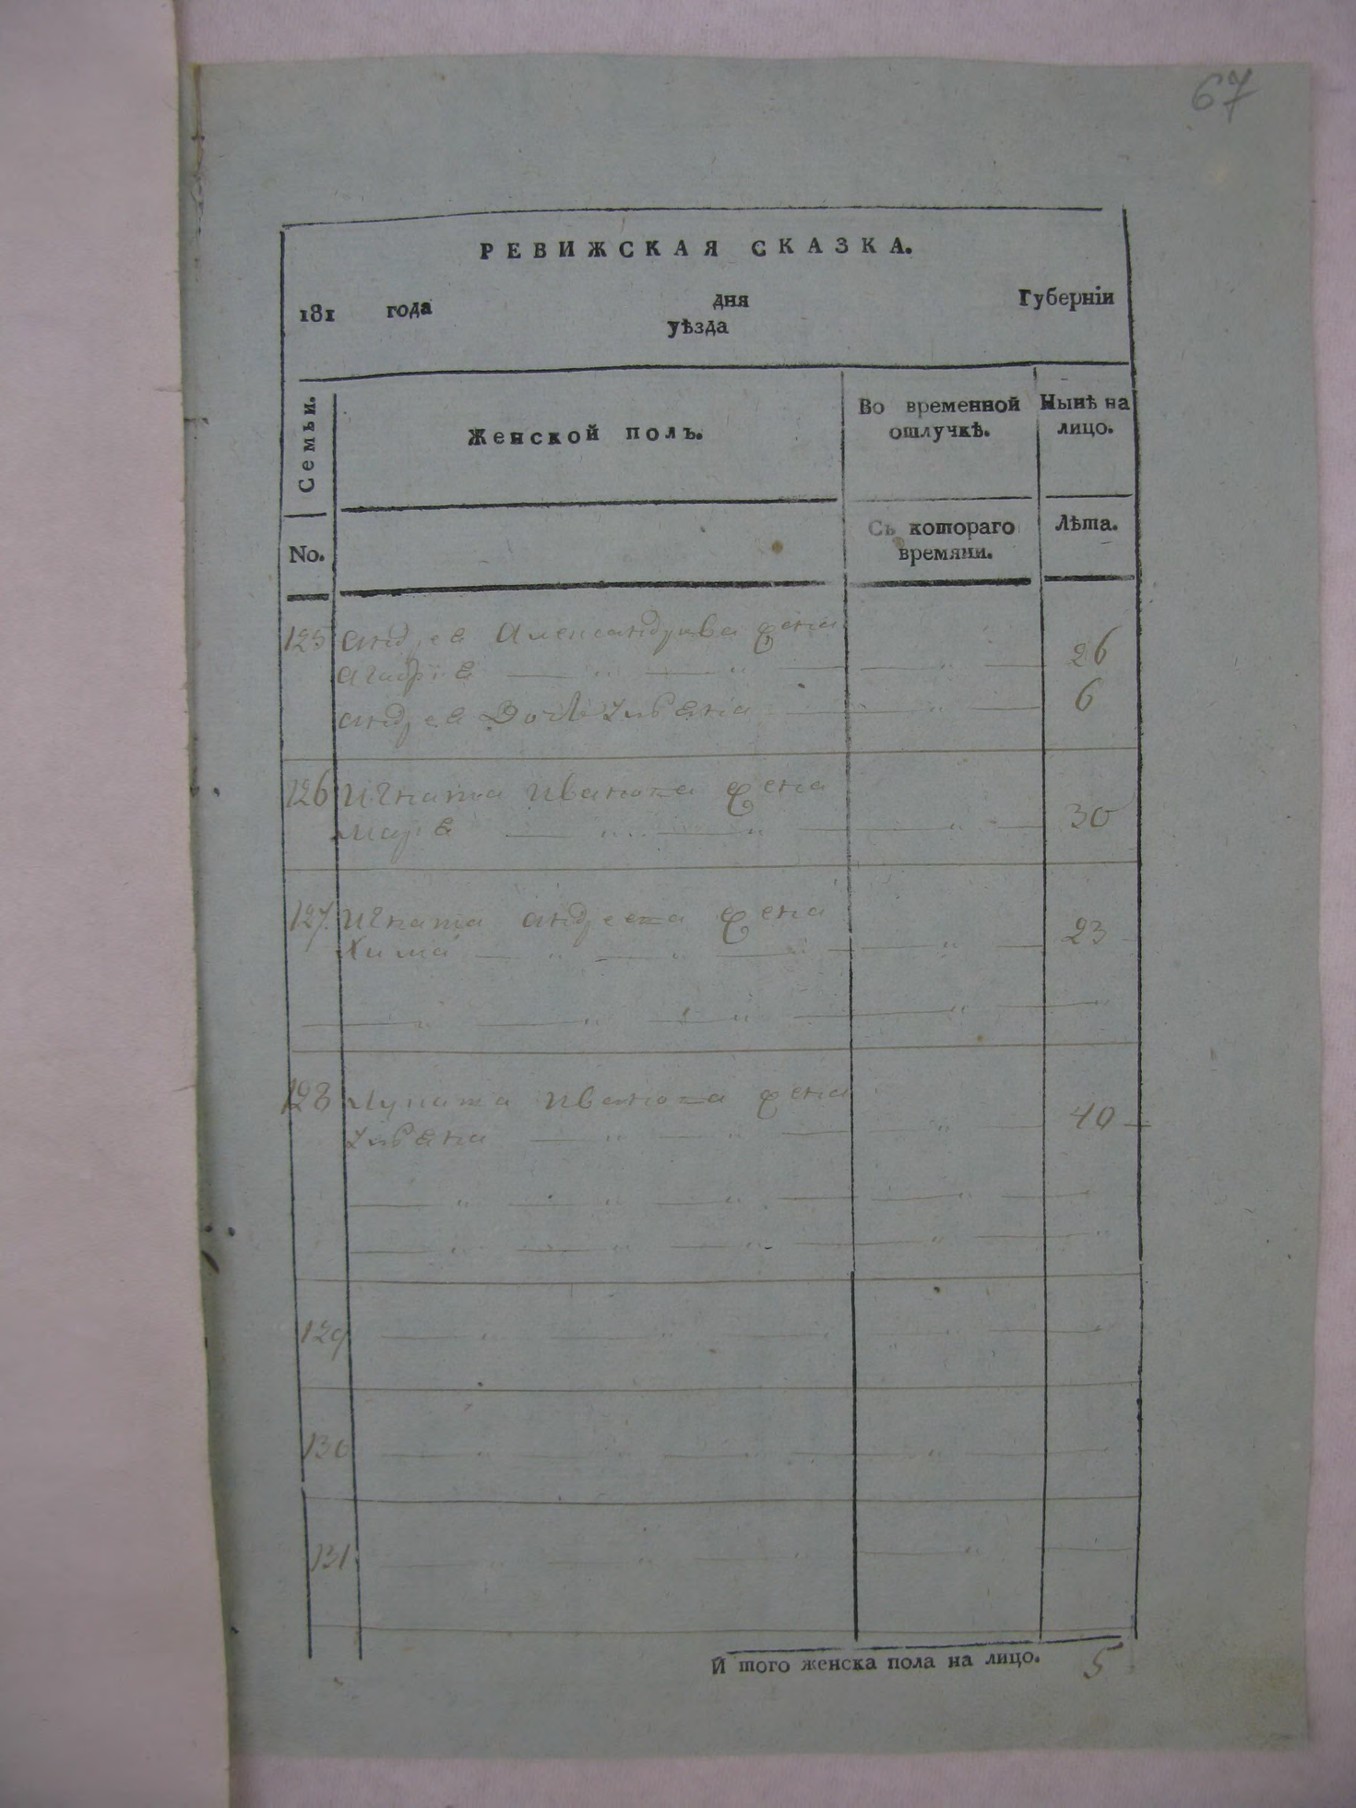 67
РЕВИЖСКАЯ СКАЗКА.
181 года дня Губернїи
уѣзда
Семьи. Женской полъ. Во временной отлучкѣ. Нынѣ на лицо.
No. Съ котораго времяни. Лѣта.
125 Андрея Александрова жена
26
Андрея дочь 6
126 Игната Иванова жена
Марья 30
127. Игната Андреева жена
Хима 23
128 Иванова жена
40
129
130
131
И того женска пола на лицо. 5